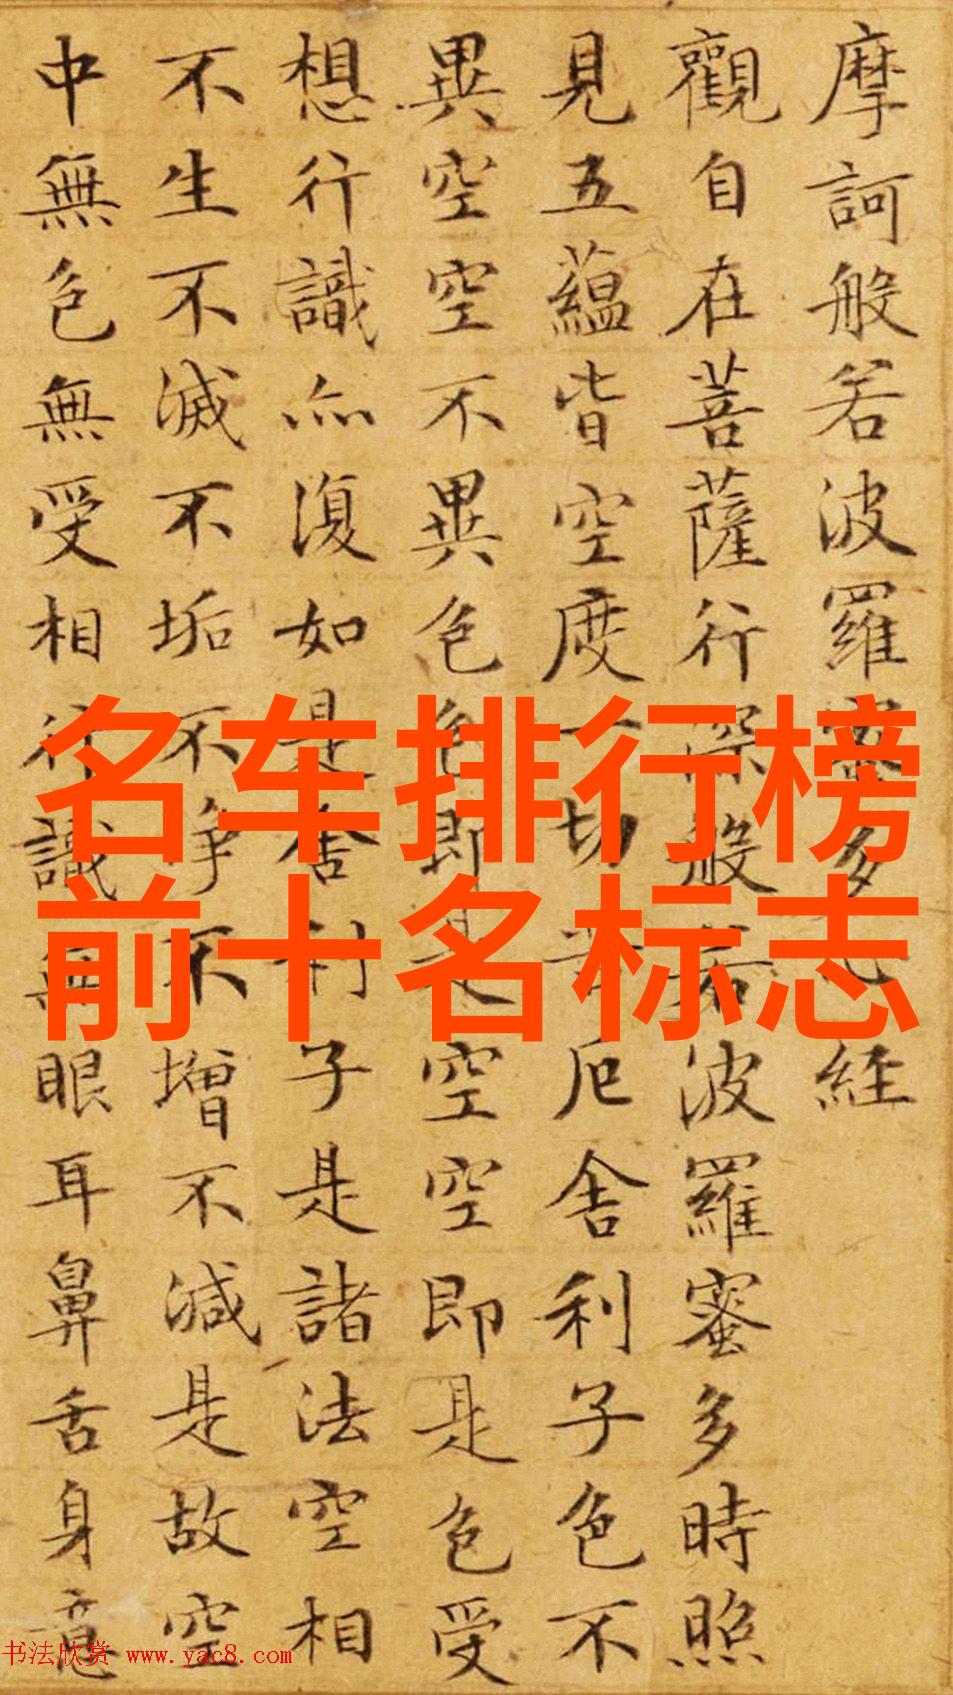 摩訶般若波羅蜜多心經
觀自在菩薩行深般若波羅蜜多時照
見五蘊皆空度一切苦厄舍利子色不
異空空不異色色即是空空即是色受
想行識亦復如是舍利子是諸法空相
不生不滅不垢不爭不增不減是故空
中無色無受相行識無眼耳鼻舌身意
名车排行榜
前十名标志
书法欣赏 www.yac8.com